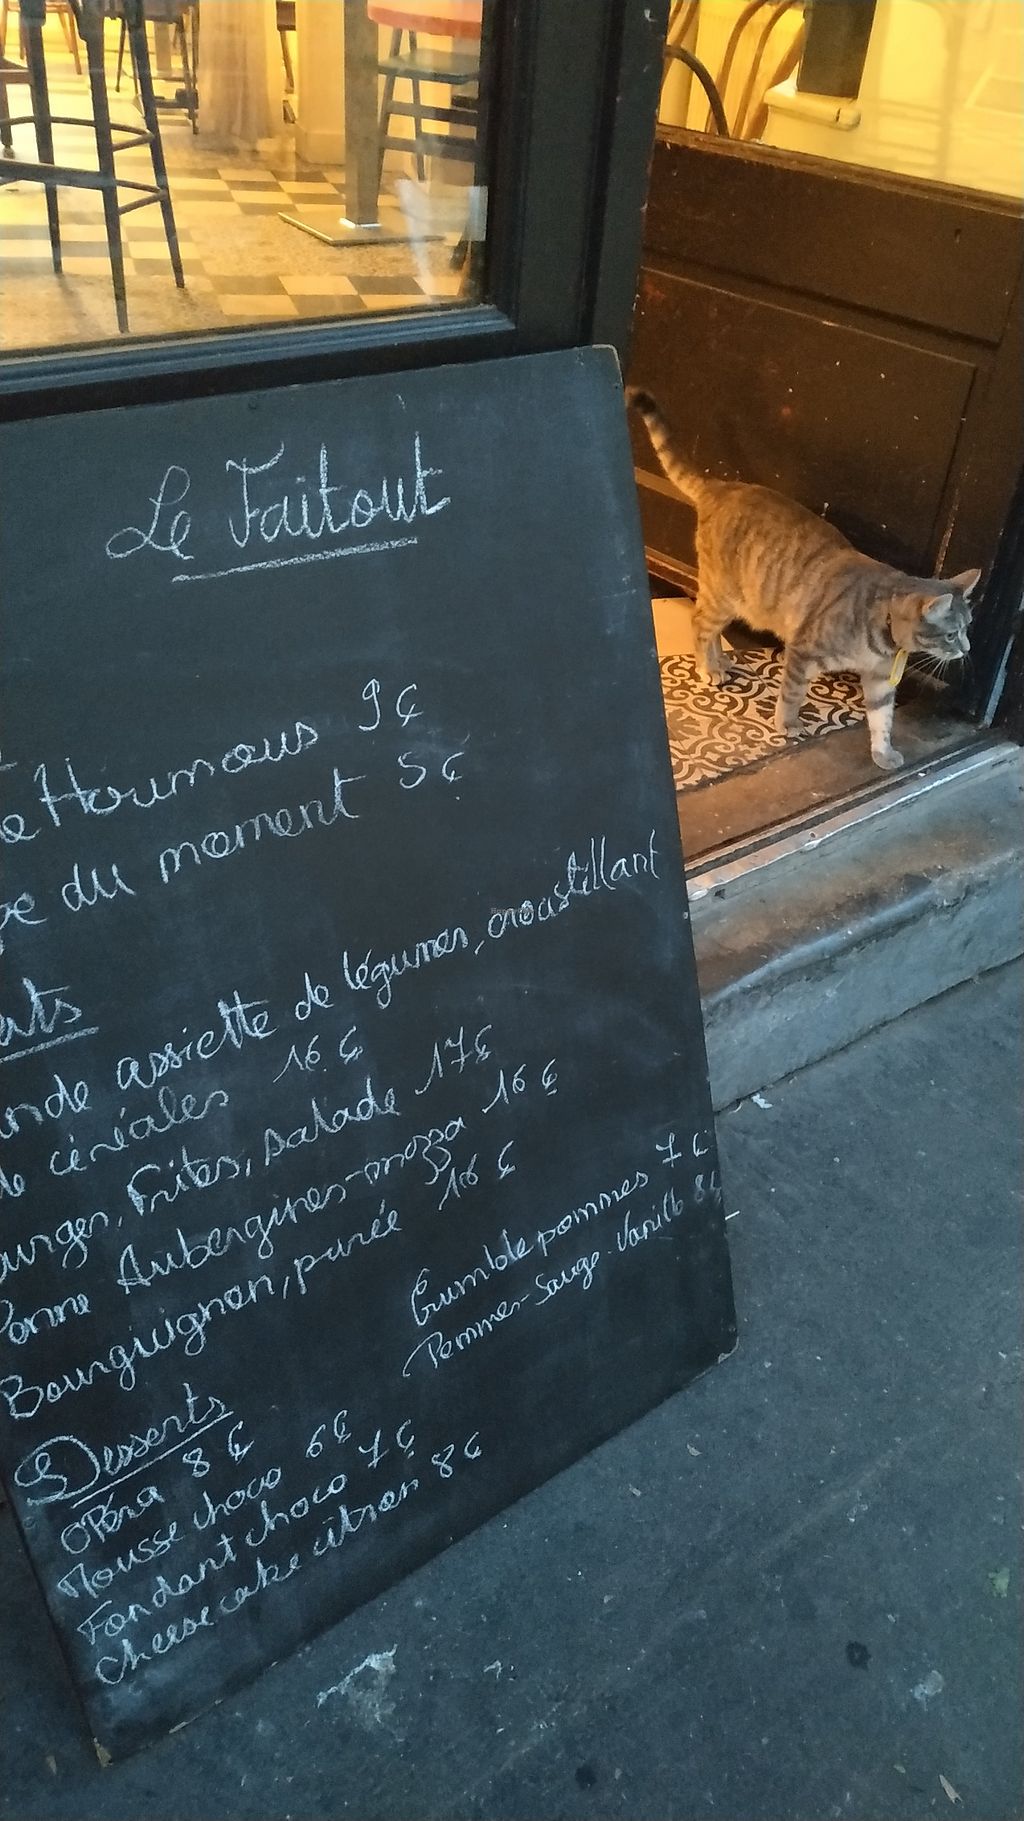 Le Faitout
Houmous 9€
du moment 5€
ats
nde assiette de légumes, croustillant
de céréales 16€
urger, Frites, salade 17€
Penne Aubergines-mozza 16€
Bourguignon, purée 16€
Crumble pommes 7€
Pommes-Sauge-Vanille 8€
Desserts
Opéra 8€
Mousse choco 6€
Fondant choco 7€
Cheesecake citron 8€